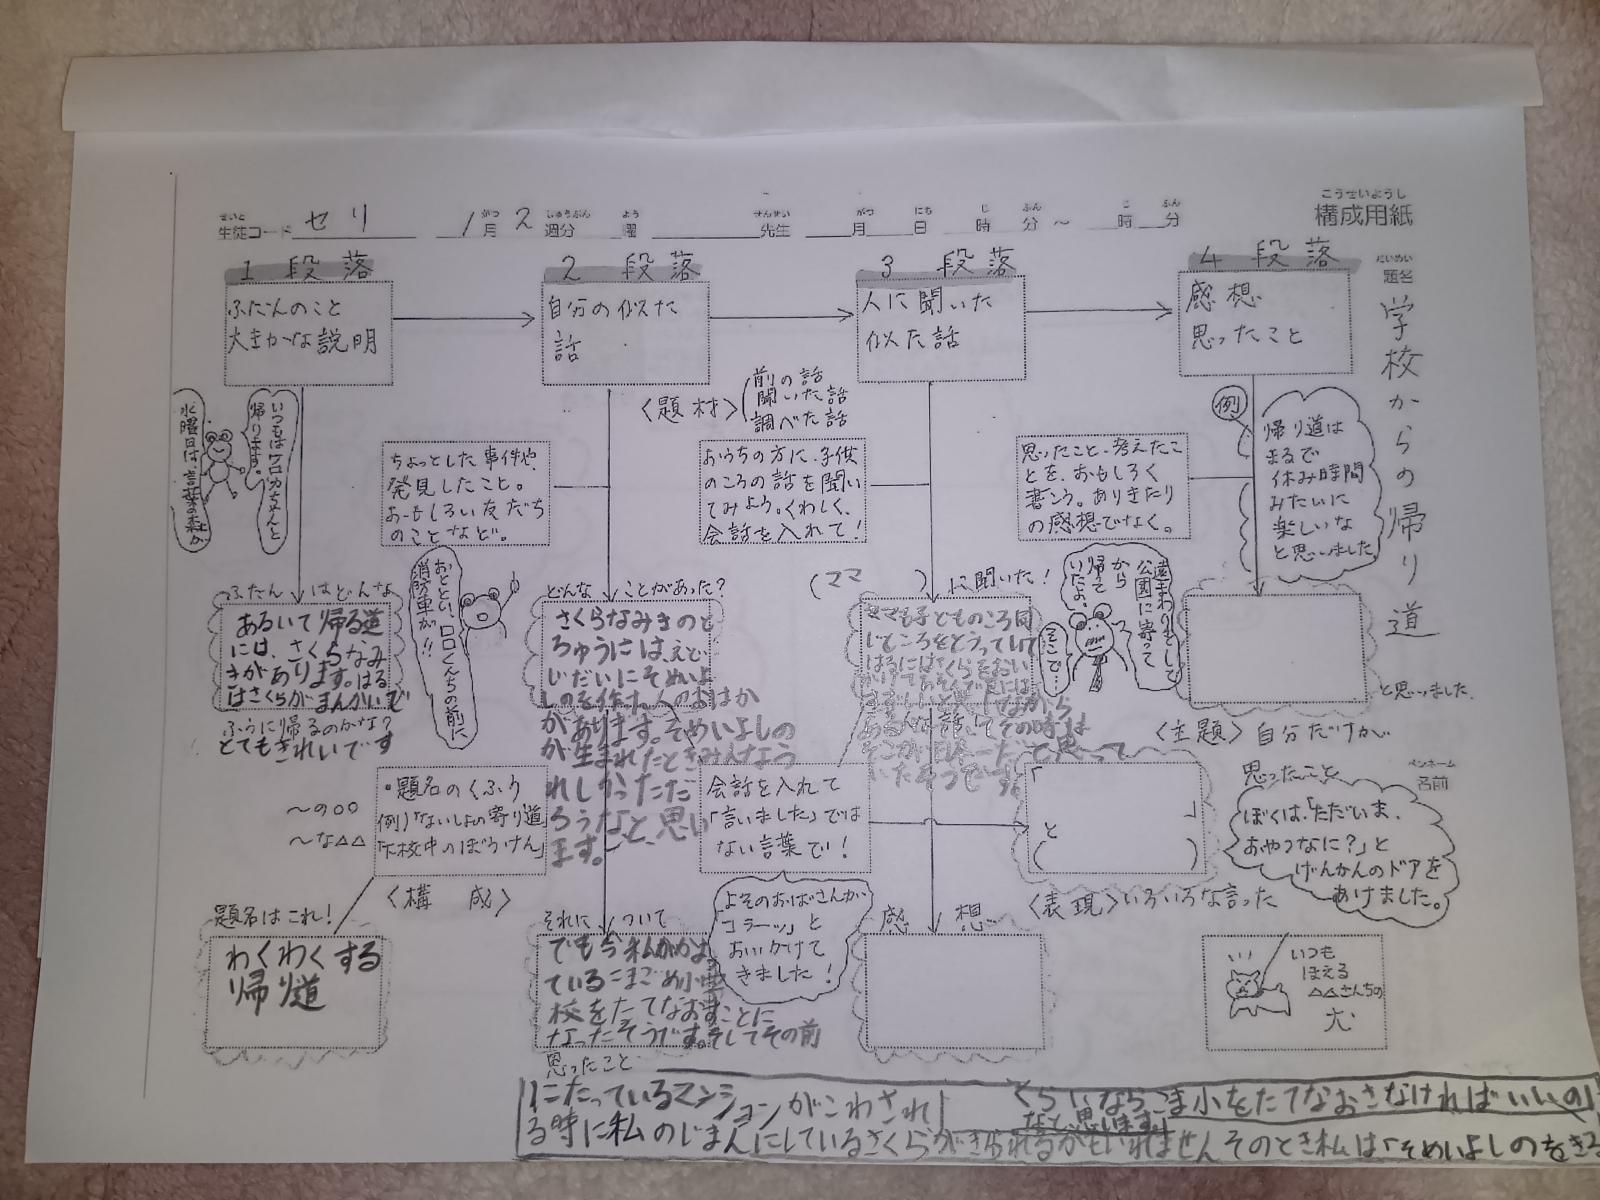 こうせいようし
構成用紙
せいと
生徒コード セリ
1月 2週分 曜
がつ しゅうぶん よう
せんせい
先生
がつ にち じ ふん
月 日 時 分 ~ 時 分
だいめい
題名 学校からの帰り道
1 段落
ふだんのこと
大まかな説明
2 段落
自分の似た
話
3 段落
人に聞いた
似た話
4 段落
感想
思ったこと
いつもはケロカちゃんと
帰ります。
水曜日は、言葉の森か
ちょっとした事件や、
発見したこと。
おもしろい友だち
のことなど。
〈題材〉
前の話
聞いた話
調べた話
おうちの方に、子供
のころの話を聞い
てみよう。くわしく、
会話を入れて!
思ったこと、考えたこ
とを、おもしろく
書こう。ありきたり
の感想でなく。
例
帰り道は
まるで
休み時間
みたいに
楽しいな
と思いました。
ふだん はどんな
あるいて帰る道
には、さくらなみ
きがあります。はる
はさくらがまんかいで
ふうに帰るのかな?
とてもきれいです
おととい、ロロくんちの前に
消防車が!!
どんな ことがあった?
さくらなみきのと
ちゅうには、えど
じだいにそめいよ
しのを作た人のおはか
があります。そめいよしの
が生まれたときみんなう
れしかっただ
ろうなと、思い
ます。
(ママ )に聞いた!
ママも子どものころ同
じところをとうっていて
はるにはさくらをおい
遠まわりをして
公園に寄って
から
帰て
いたよ。
そこで…
と思いました。
〈主題〉自分だけが
思ったこと
ペンネーム
名前
・題名のくふう
例)「ないしょの寄り道」
「下校中のぼうけん」
〜の○○
〜な△△
〈構 成〉
会話を入れて
「言いました」では
ない言葉で!
「
」
と
( )
ぼくは、「ただいま、
おやつなに?」と
げんかんのドアを
あけました。
題名はこれ!
わくわくする
帰り道
それに ついて
でも今私がかよ
ているこまごめ小学
校をたてなおすことに
なったそうです。そしてその前
思ったこと
よそのおばさんが
「コラーッ」と
おいかけて
きました!
感 想
〈表現〉いろいろな言った
いつも
ほえる
△△さんちの
犬
にたっているマンションがこわされ
る時に私のじまんにしているさくらがきられるかもしれませんそのとき私は「そめいよしのをきる
くらいならこま小をたてなおさなければいいの
なと思います。